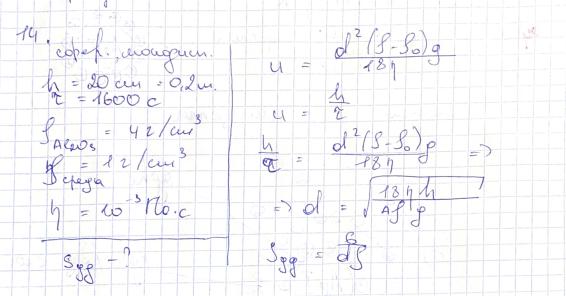 14.
сфер., монодисп.
h = 20 см = 0,2 м.
τ = 1600 с
ρ Al2O3 = 4 г/см³
ρ среда = 1 г/см³
η = 10⁻³ Па·с
Sуд – ?
u = d²(ρ-ρ₀)g / 18η
u = h / τ
h / τ = d²(ρ-ρ₀)g / 18η =>
=> d = √(18ηh / Δρ g)
Sуд = 6 / dρ